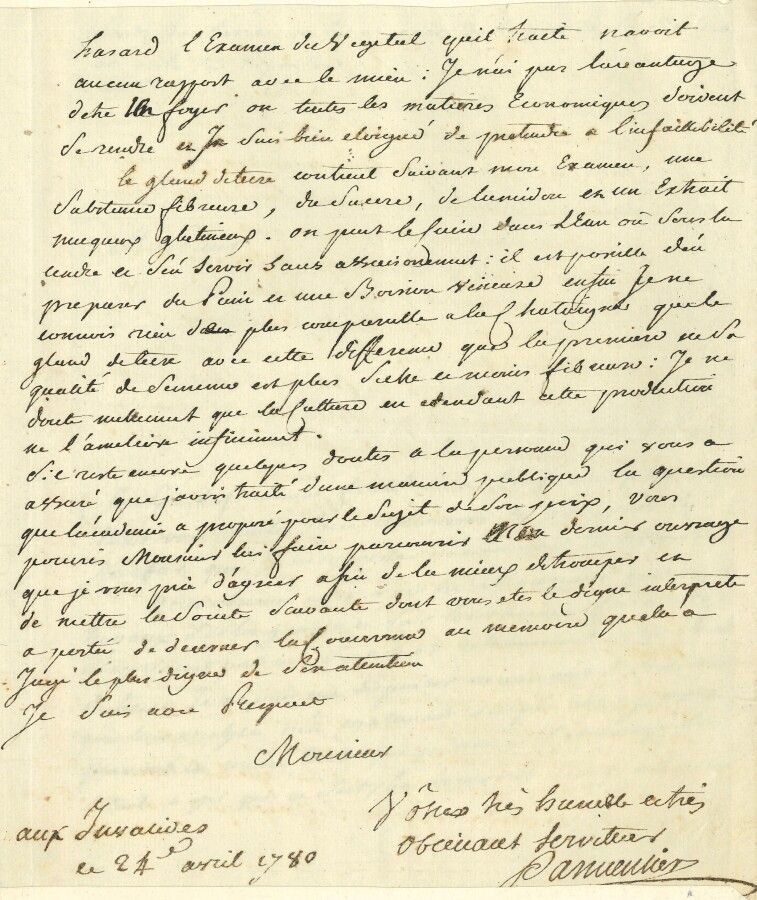 hasard l'Examen du Vegetal qu'il traite n'avoit
aucun rapport avec le mien : Je n'ai pas l'avantage
d'etre un foyer ou toutes les matieres Economiques doivent
se rendre et Je suis bien eloigné de pretendre a l'infaillibilité
le gland de terre contient suivant mon Examen, une
substance fibreuse, du sucre, de l'amidon et un Extrait
muqueux glutineux. on peut le cuire dans l'Eau ou sous la
cendre et s'en servir sans assaisonnement : il est possible d'en
preparer du Pain et une Boisson vineuse enfin Je ne
connois rien de plus comparable a la Chataigne que le
gland de terre avec cette difference que la premiere en sa
qualité de semence est plus seche et moins fibreuse : Je ne
doute nullement que la Culture en etendant cette production
ne l'ameliore infiniment.
S'il reste encore quelques doutes a la personne qui vous a
assuré, que j'avois traité d'une maniere publique la question
que l'academie a proposé pour le Sujet de son prix, vous
pouriés Monsieur lui faire parcourir mon dernier ouvrage
que je vous prie d'agreer afin de la mieux detromper et
de mettre la Societé Savante dont vous etes le digne interprete
a portée de decerner la Couronne au memoire qu'elle a
Jugé le plus digne de son attention
Je suis avec Respect
Monsieur
Vôtre très humble et très
aux Invalides
obeissant serviteur
ce 24e avril 1780
Parmentier